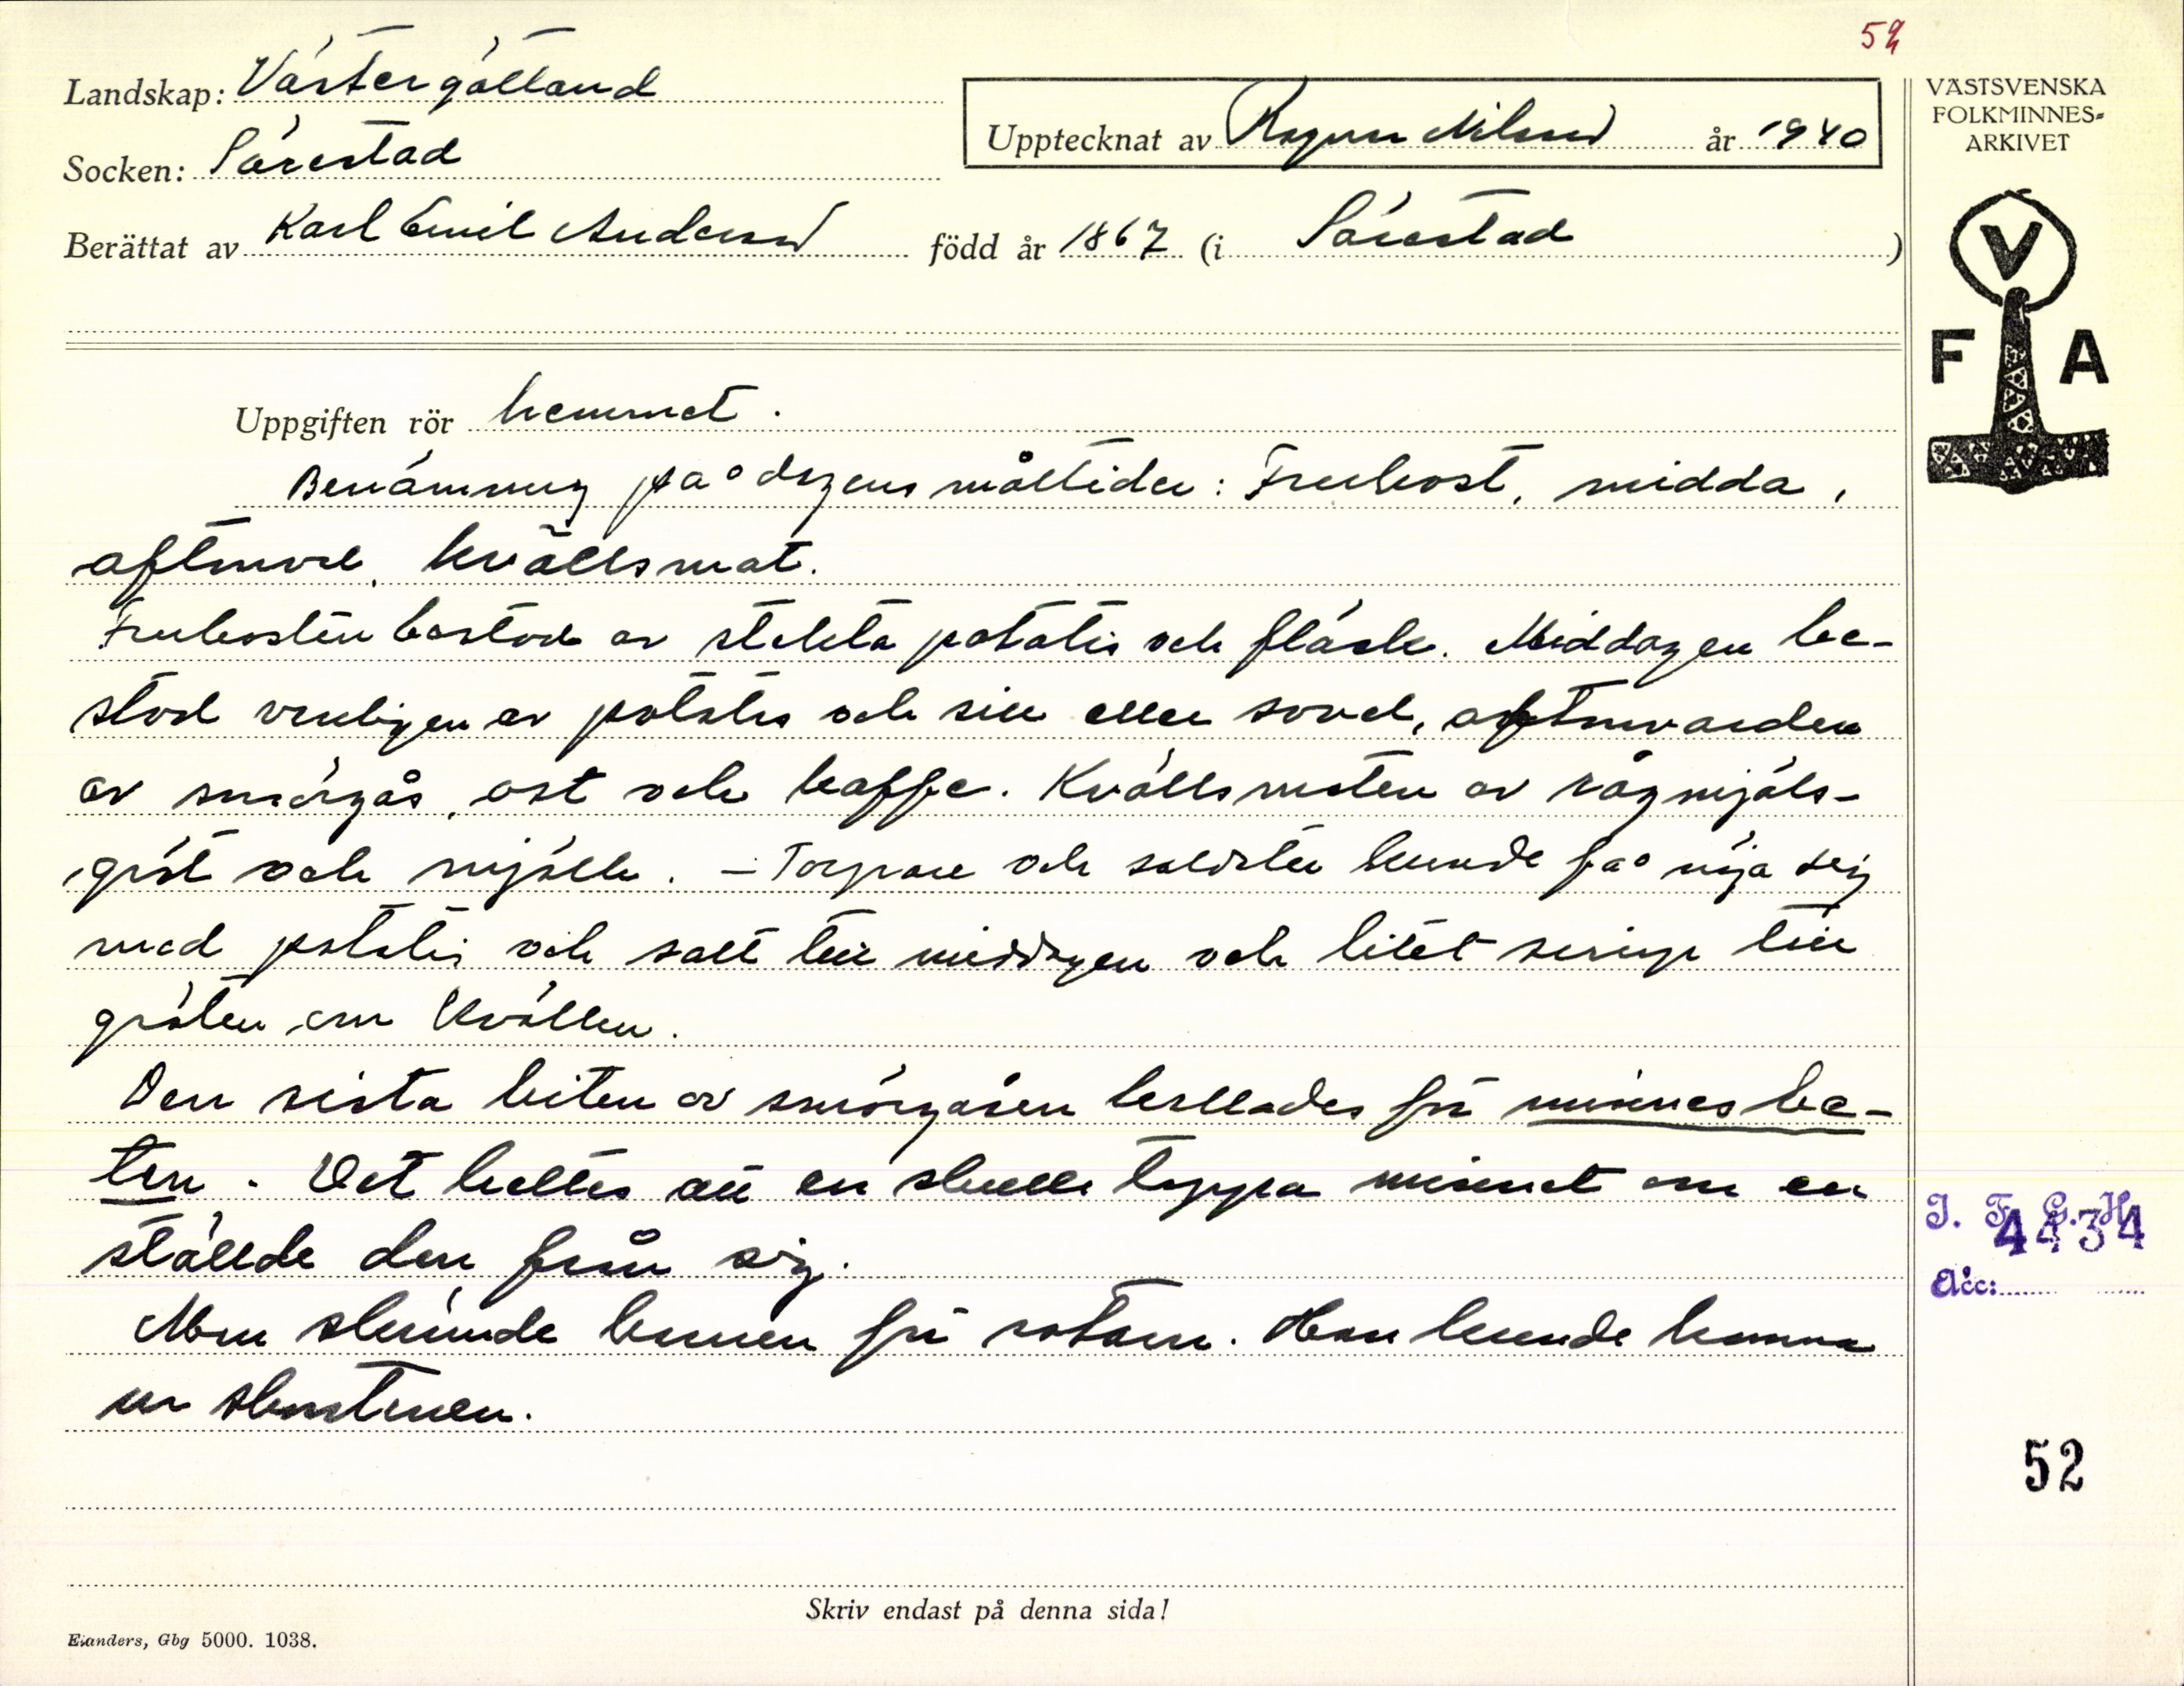 52
Landskap: Västergötland
Upptecknat av Ragnar Nilsson år 1940
VÄSTSVENSKA
FOLKMINNES-
ARKIVET
Socken: Särestad
Berättat av Karl Emil Andersson född år 1867 (i Särestad)
V
F A
Uppgiften rör hemmet.
Benämning på dagens måltider: Frukost, midda,
aftmvol, kvällsmat.
Frukosten bestod av stekta potatis och fläsk. Middagen be-
stod vanligen av potatis och sill eller sovel, aftonvarden
av smörgås, ost och kaffe. Kvällsmaten av rågmjöls-
gröt och mjölk. – Torpare och soldater kunde få nöja sig
med potatis och salt till middagen och litet sirap till
gröten om kvällen.
Den sista biten av smörgåsen kallades för minnesbe-
ten. Det hettes att en skulle tappa minnet om en
ställde den från sig.
Men skrämde barnen för sotarn. Han kunde komma
ur skorstenen.
I. F. G. H.
4434
Acc:
52
Skriv endast på denna sida!
Elanders, Gbg 5000. 1038.